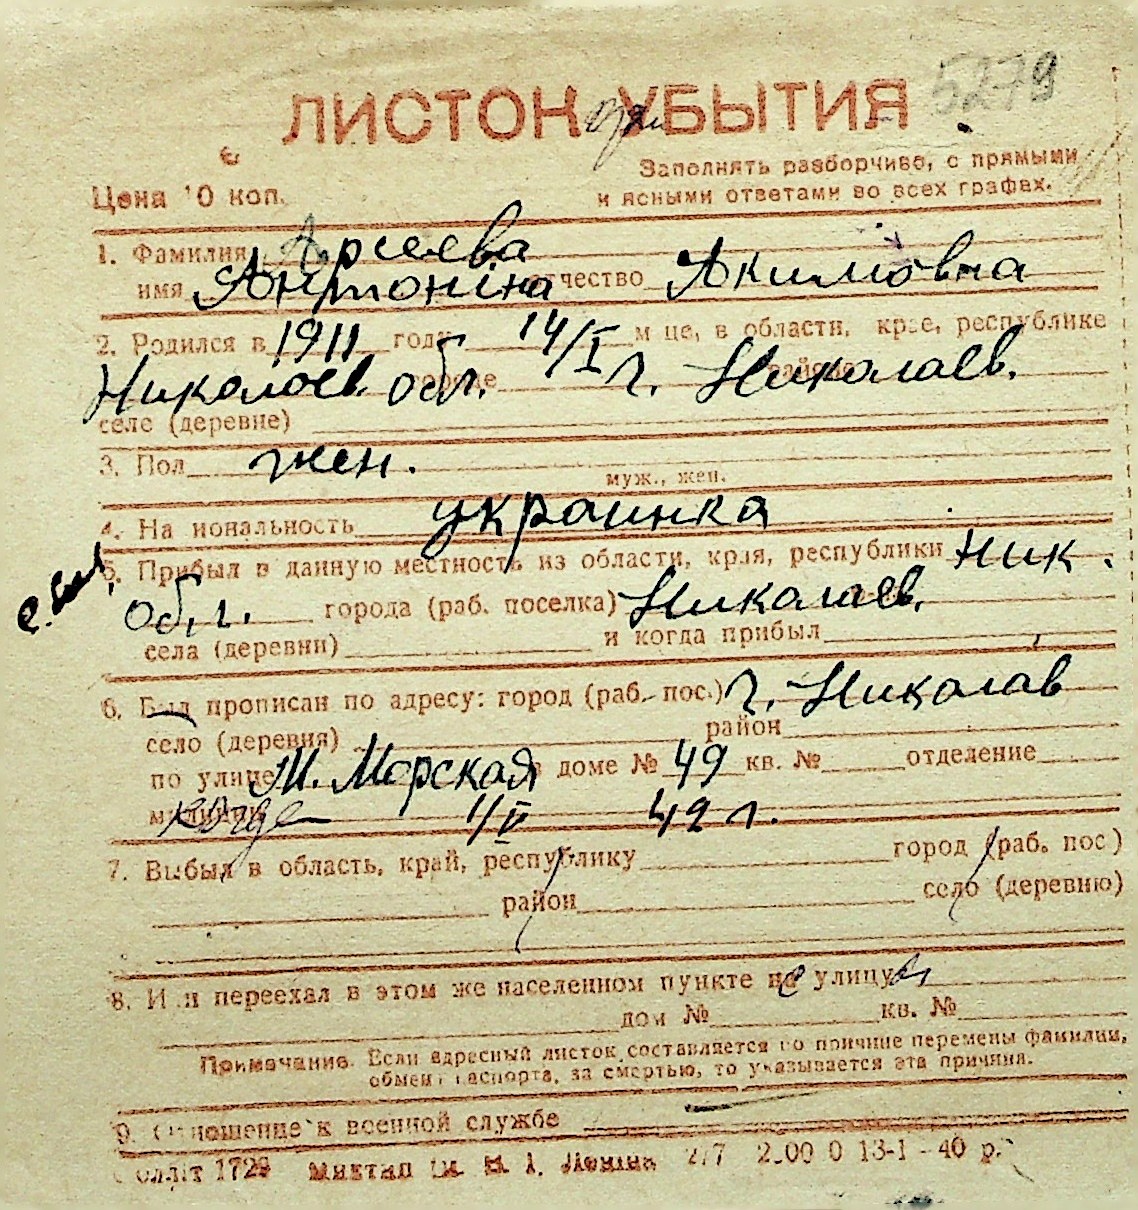 5279
ЛИСТОК УБЫТИЯ
Цена 10 коп.
Заполнять разборчиво, с прямыми
и ясными ответами во всех графах.
1. Фамилия Арсеева
имя Антоніна отчество Якимовна
2. Родился в 1911 году 14/I м-це, в области, крае, республике
Николаев. обл. городе г. Николаев. районе
селе (деревне)
3. Пол жен.
муж., жен.
4. Национальность украинка
5. Прибыл в данную местность из области, края, республики Ник.
обл. города (раб. поселка) Николаев.
села (деревни) и когда прибыл
6. Был прописан по адресу: город (раб. пос.) г. Николаев
село (деревня) район
по улице М. Морская в доме № 49 кв. № отделение
милиции 1/V 42 г.
7. Выбыл в область, край, республику город (раб. пос)
район село (деревню)
8. Или переехал в этом же населенном пункте на улицу
дом № кв. №
Примечание. Если адресный листок составляется по причине перемены фамилии,
обмен паспорта, за смертью, то указывается эта причина.
9. Отношение к военной службе
1729 им. В. І. Леніна 277 2.00 0 13-1 - 40 р.